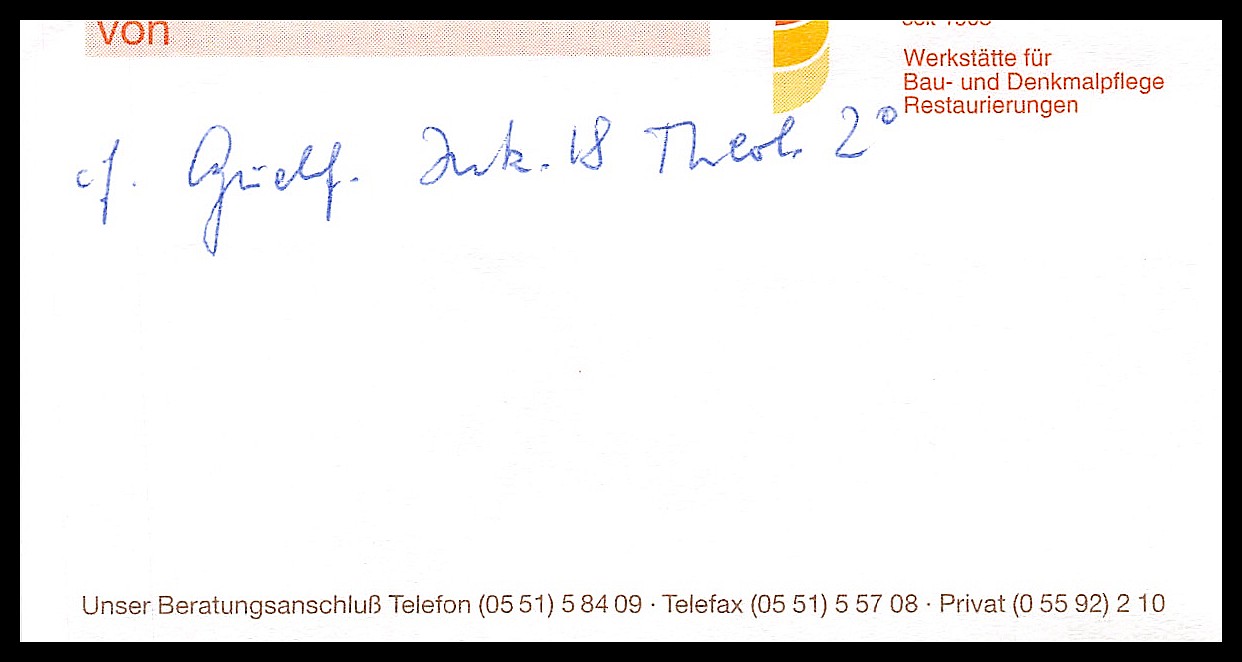 von
seit 1905
Werkstätte für
Bau- und Denkmalpflege
Restaurierungen
cf. Ink. 18 Theol. 2°
Unser Beratungsanschluß Telefon (05 51) 5 84 09 · Telefax (05 51) 5 57 08 · Privat (0 55 92) 2 10